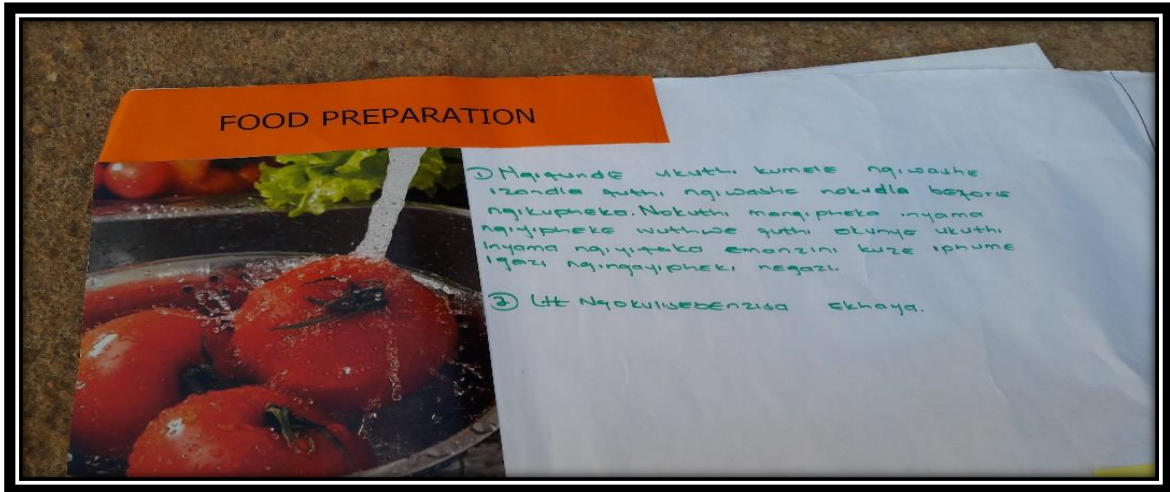 FOOD PREPARATION
① Ngifunde ukuthi kumele ngiwashe
izandla futhi ngiwashe nokudla before
ngikupheka. Nokuthi mangipheka inyama
ngiyipheke ivuthwe futhi okunye ukuthi
inyama ngiyifaka emanzini kuze iphume
igazi ngingayipheki negazi.
② Ngokulisebenzisa Ekhaya.